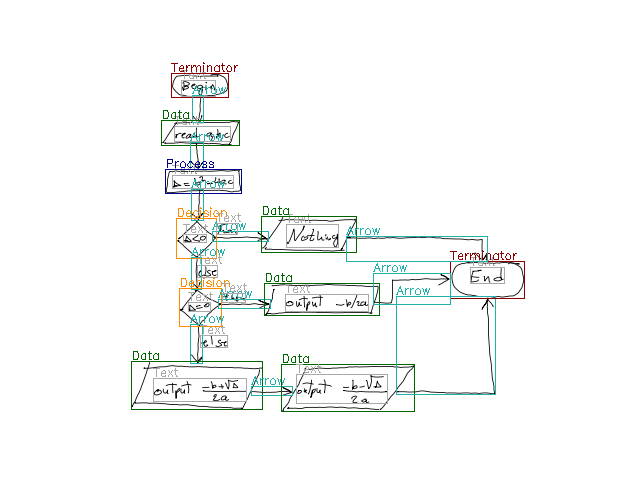 Terminator
Text
Begin
Arrow
Data
Text
read a,b,c
Arrow
Process
Text
Δ = b²-4ac
Arrow
Decision
Text
Δ<0
Text
Arrow
Data
Text
Nothing
Arrow
Terminator
Text
End
Arrow
Text
else
Decision
Text
Δ=0
Text
Arrow
Data
Text
output -b/2a
Arrow
Arrow
Text
else
Data
Text
output -b+√Δ
2a
Arrow
Data
Text
output -b-√Δ
2a
Arrow